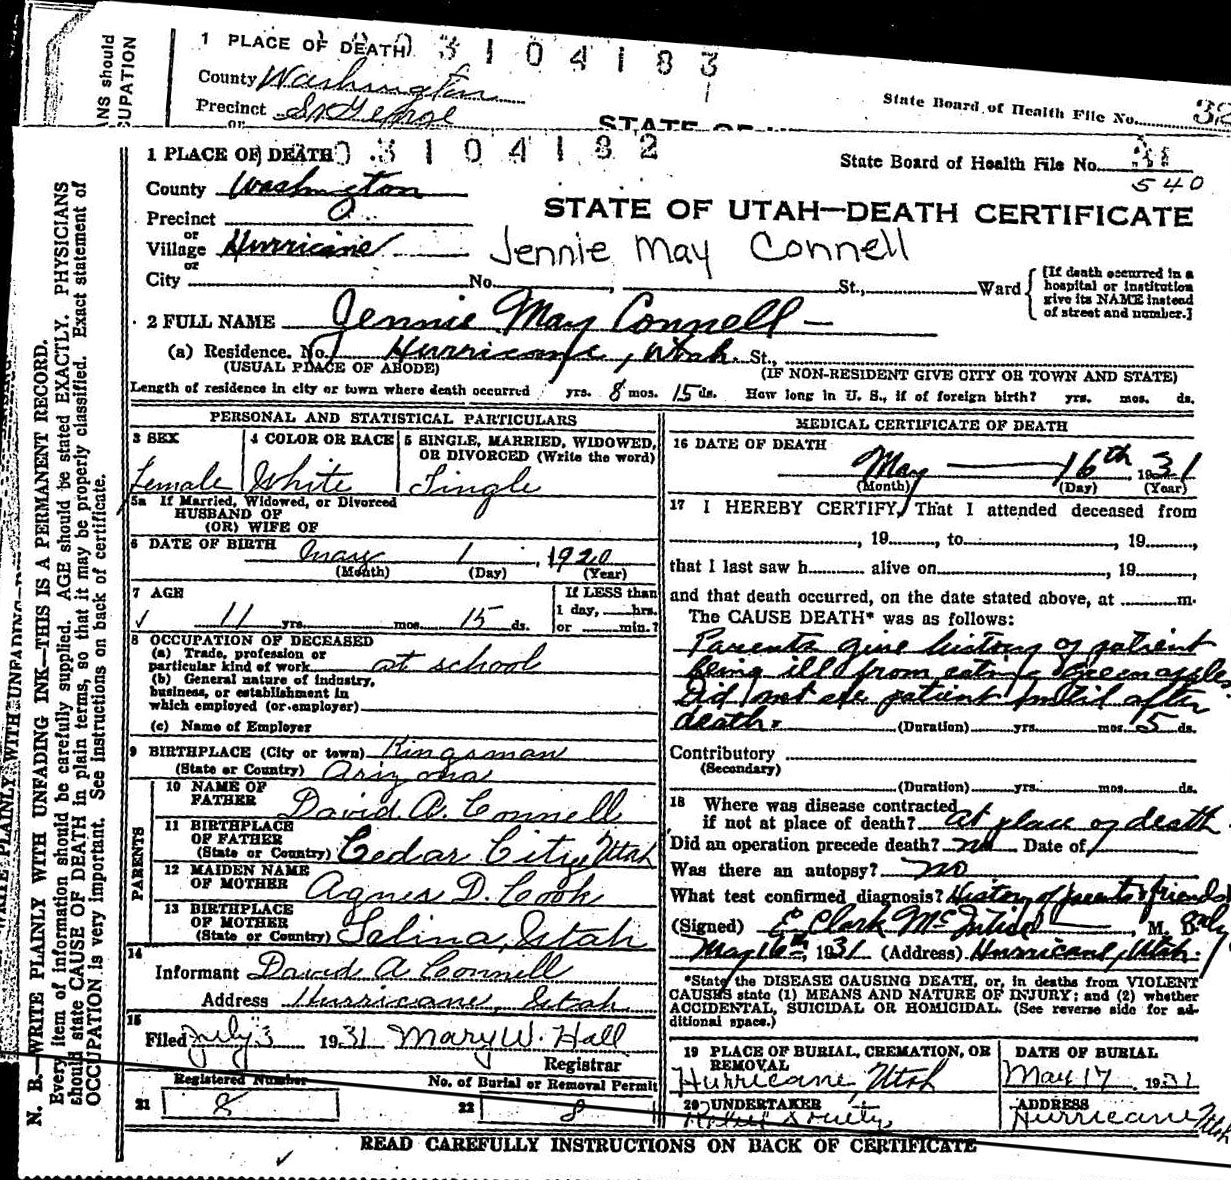 1 PLACE OF DEATH 0 3 1 0 4 1 8 3
County Washington
Precinct St George
or
State Board of Health File No. 32
STATE OF
1 PLACE OF DEATH 0 3 1 0 4 1 8 2
State Board of Health File No.
540
County Washington
STATE OF UTAH—DEATH CERTIFICATE
Precinct
or
Village Hurricane Jennie May Connell
or
City No. St., Ward
[If death occurred in a hospital or institution give its NAME instead of street and number.]
2 FULL NAME Jennie May Connell
(a) Residence. No. Hurricane, Utah. St.,
(USUAL PLACE OF ABODE) (IF NON-RESIDENT GIVE CITY OR TOWN AND STATE)
Length of residence in city or town where death occurred yrs. 8 mos. 15 ds. How long in U. S., if of foreign birth? yrs. mos. ds.
PERSONAL AND STATISTICAL PARTICULARS
3 SEX 4 COLOR OR RACE 5 SINGLE, MARRIED, WIDOWED,
OR DIVORCED (Write the word)
Female White Single
5a If Married, Widowed, or Divorced
HUSBAND OF
(OR) WIFE OF
6 DATE OF BIRTH May 1, 1920
(Month) (Day) (Year)
7 AGE If LESS than
1 day, hrs.
11 yrs. mos. 15 ds. or min.?
8 OCCUPATION OF DECEASED
(a) Trade, profession or
particular kind of work at school
(b) General nature of industry,
business, or establishment in
which employed (or employer)
(c) Name of Employer
9 BIRTHPLACE (City or town) Kingsman
(State or Country) Arizona
PARENTS
10 NAME OF
FATHER David A. Connell
11 BIRTHPLACE
OF FATHER
(State or Country) Cedar City, Utah
12 MAIDEN NAME
OF MOTHER Agnes D. Cook
13 BIRTHPLACE
OF MOTHER
(State or Country) Salina, Utah
14
Informant David A Connell
Address Hurricane, Utah
15
Filed July 3 1931 Mary W. Hall
Registrar
Registered Number No. of Burial or Removal Permit
21 8 22 8
MEDICAL CERTIFICATE OF DEATH
16 DATE OF DEATH
May 16th 1931
(Month) (Day) (Year)
17 I HEREBY CERTIFY, That I attended deceased from
, 19 , to , 19 ,
that I last saw h alive on , 19 ,
and that death occurred, on the date stated above, at m.
The CAUSE DEATH* was as follows:
Parents give history of patient
being ill from eating green apples.
Did not see patient until after
death. (Duration) yrs. mos. 5 ds.
Contributory
(Secondary)
(Duration) yrs. mos. ds.
18 Where was disease contracted
if not at place of death? at place of death
Did an operation precede death? no Date of
Was there an autopsy? no
What test confirmed diagnosis? History of parents & friends
only
(Signed) E Clark , M. D.
May 16th, 1931 (Address) Hurricane, Utah.
*State the DISEASE CAUSING DEATH, or, in deaths from VIOLENT
CAUSES state (1) MEANS AND NATURE OF INJURY; and (2) whether
ACCIDENTAL, SUICIDAL OR HOMICIDAL. (See reverse side for ad-
ditional space.)
19 PLACE OF BURIAL, CREMATION, OR
REMOVAL
Hurricane, Utah
DATE OF BURIAL
May 17, 1931
20 UNDERTAKER
ADDRESS
Hurricane Utah
READ CAREFULLY INSTRUCTIONS ON BACK OF CERTIFICATE
N. B.—WRITE PLAINLY WITH UNFADING INK—THIS IS A PERMANENT RECORD.
Every item of information should be carefully supplied. AGE should be stated EXACTLY. PHYSICIANS
should state CAUSE OF DEATH in plain terms, so that it may be properly classified. Exact statement of
OCCUPATION is very important. See instructions on back of certificate.